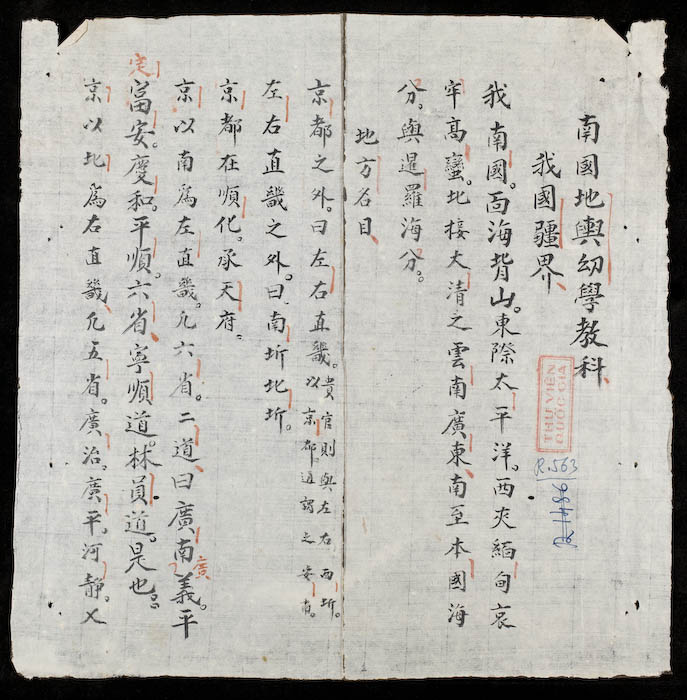 南國地輿幼學教科
我國疆界
我南國。面海背山。東際太平洋。西夾緬甸哀
牢高蠻。北接大清之雲南廣東。南至本國海
分。與暹羅海分。
地方名目
京都之外。曰左右直畿。貴官則與左右西圻。以京都。通謂之安省。
左右直畿之外。曰南圻北圻。
京都在順化。承天府。
京以南爲左直畿。凢六省。二道曰廣南廣義。平
定富安。慶和。平順。六省。寧順道。林員道。是也。
京以北爲右直畿。凢五省。廣治。廣平。河靜。乂
THƯ VIỆN
QUỐC GIA
R.563